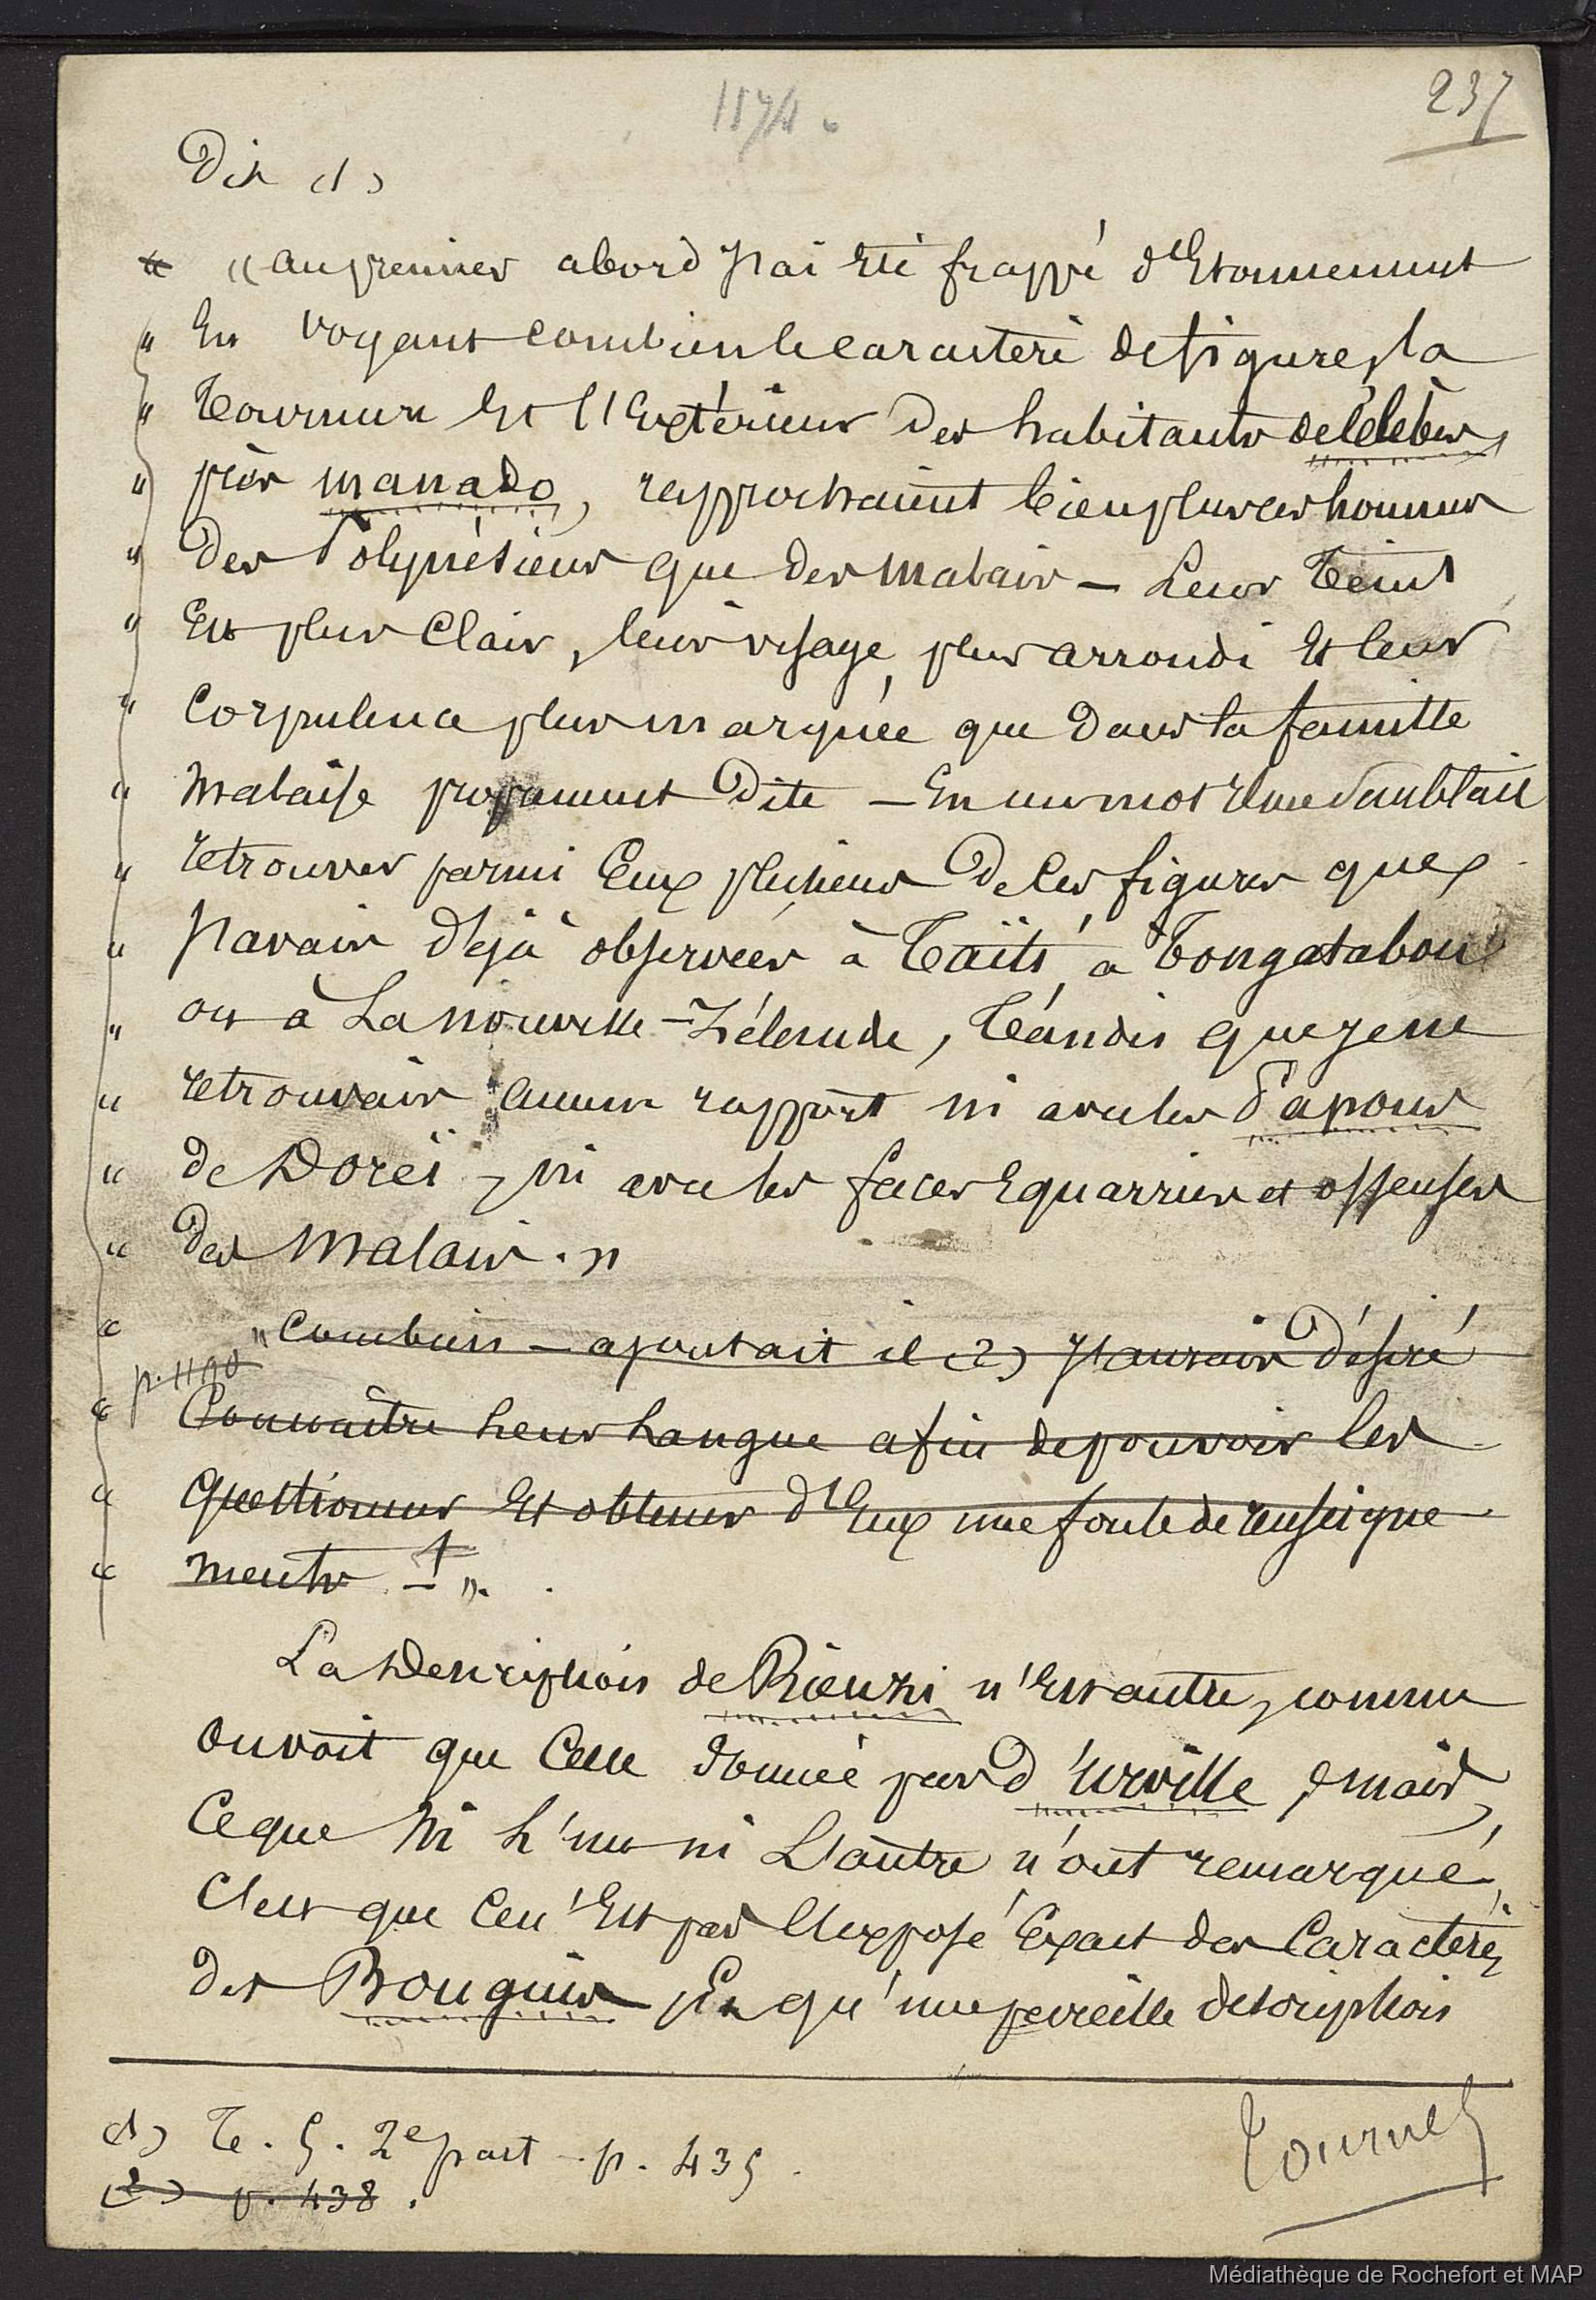 237
Dit (1)
" "au premier abord j'ai été frappé d'Etonnement
" En voyant combien le caractère de figure, la
" Tournure Et l'Extérieur des habitants de Célèbes,
" près manado, rapprochaient bien plus ces hommes
" des Polynésiens que des malais — Leur teint
" Est plus Clair, leur visage plus arrondi Et leur
" Corpulence plus marquée que dans la famille
" malaise proprement dite — En un mot il me semblait
" retrouver parmi Eux plusieurs de ces figures que
" j'avais déjà observées à Taïti, à Tongatabou
" ou à La nouvelle-Zélande, tandis que je ne
" retrouvais aucun rapport ni avec les Papous
" de Doreï, ni avec les faces Equarries et osseuses
" des Malais."
" "Combien — ajoutait il (2) j'aurais désiré
p. 1190
" Connaître leur Langue afin de pouvoir les
" questionner Et obtenir d'Eux une foule de renseigne
" ments — ! ".
La Description de Rienzi n'Est autre, comme
on voit que Celle donnée par D'urville, mais,
Ce que ni L'un ni L'autre n'ont remarqué,
C'est que Ce n'Est pas l'Exposé Exact des Caractères
des Bouguis, Et qu'une pareille description
(1) T. 5. 2e part. p. 435.
(2) p. 438.
Tournez
Médiathèque de Rochefort et MAP